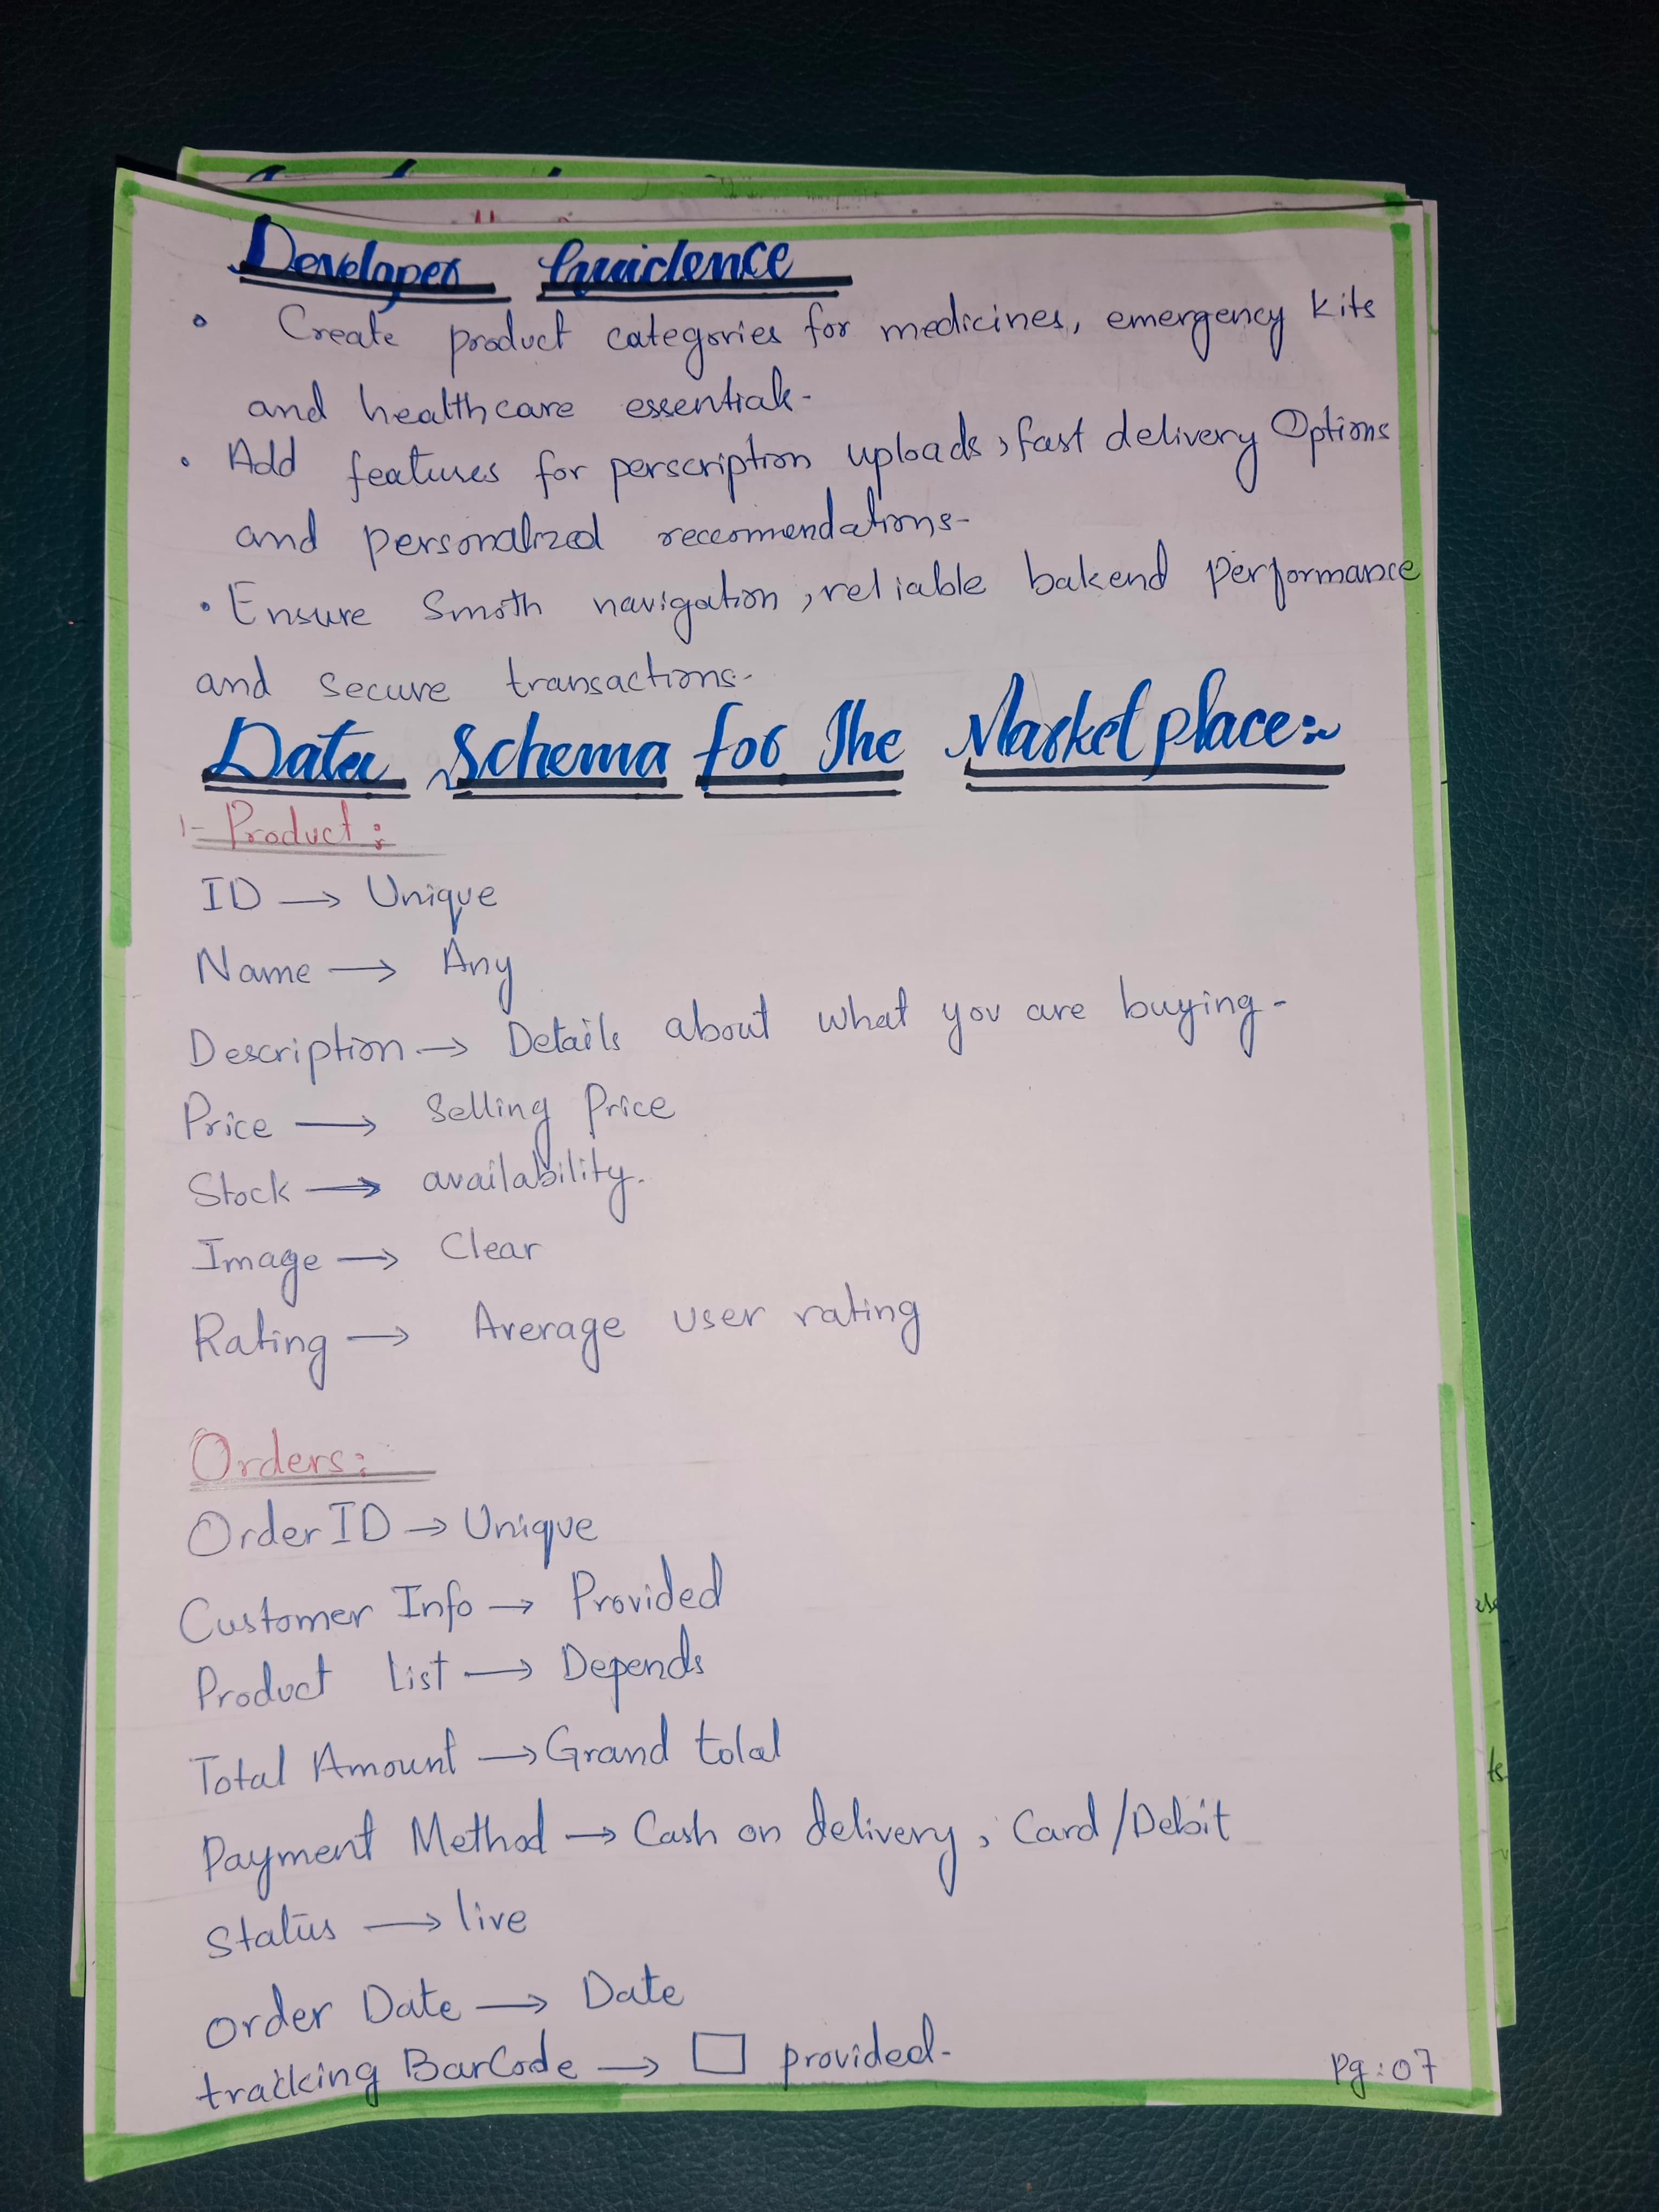 Developer Guidence
• Create product categories for medicines, emergency kits
and healthcare essentials-
• Add features for perscription uploads, fast delivery Options
and personalized reccomendations-
• Ensure Smoth navigation, reliable bakend performance
and secure transactions-
Data Schema for The Marketplace:~
1- Product:
ID → Unique
Name → Any
Description → Details about what you are buying-
Price → Selling Price
Stock → availability.
Image → Clear
Rating → Average user rating
Orders:
Order ID → Unique
Customer Info → Provided
Product List → Depends
Total Amount → Grand total
Payment Method → Cash on delivery, Card/Debit
Status → live
Order Date → Date
tracking BarCode → □ provided-
Pg:07